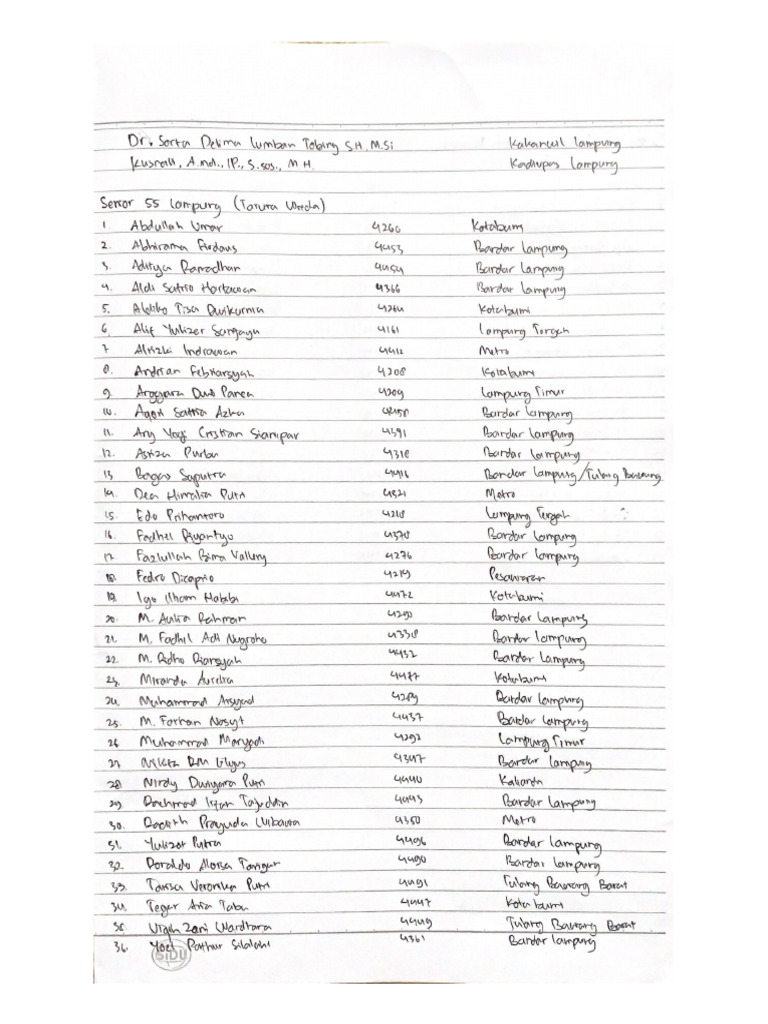 Dr. Sorta Delima Lumban Tobing S.H. M.Si Kakanwil Lampung
Kusnali, A.md., IP., S.sos., M.H. Kadivpas Lampung
Senior 55 Lampung (Taruna Utada)
1. Abdullah Umar 4260 Kotabumi
2. Abhirama Firdaus 4453 Bandar Lampung
3. Aditya Ramadhan 4454 Bandar Lampung
4. Aldi Satrio Hartawan 4366 Bandar Lampung
5. Aldiko Tisa Dwikurnia 4264 Kotabumi
6. Alif Yulizer Sangaya 4161 Lampung Tengah
7 Alrizki Indrawan 4412 Metro
8. Andrian Febriansyah 4208 Kotabumi
9. Anggara Dwi Panca 4209 Lampung Timur
10. Satria Azka Bandar Lampung
11. Ary Yogi Cristian Sianipar 4391 Bandar Lampung
12. Asriza Purba 4318 Bandar Lampung
13 Bagas Saputra 4416 Bandar Lampung/Tulang Bawang
14. Dea Himalia Putri 4321 Metro
15. Edo Prihantoro 4218 Lampung Tengah
16. Fadhel Riyantyo 4370 Bandar Lampung
17. Fazlullah Bima Vallery 4276 Bandar Lampung
18. Fedro Dicaprio 4219 Pesawaran
19. Igo Ilham Habibi 4472 Kotabumi
20. M. Aulia Rahman 4290 Bandar Lampung
21. M. Fadhil Adi Nugroho 4338 Bandar Lampung
22. M. Ridho Riansyah 4432 Bandar Lampung
23. Miranda Aurelia 4477 Kotabumi
24. Muhammad Arsyad 4289 Bandar Lampung
25. M. Farhan Nosyt 4437 Bandar Lampung
26 Muhammad Maryadi 4292 Lampung Timur
27 4347 Bandar Lampung
28. Nindy Dwiyana Putri 4440 Kalianda
29. Rachmad Irfan Tajuddin 4443 Bandar Lampung
30. Radith Prayuda Wibawa 4350 Metro
31. Yulizar Putra 4496 Bandar Lampung
32. Ronaldo Aloisa Tarigan 4490 Bandar Lampung
33. Tarisa Veronika Putri 4491 Tulang Bawang Barat
34. Tegar Aria Tabu 4447 Kotabumi
35. Virgin Zani Wardhana 4449 Tulang Bawang Barat
36. Yoel Pathur Silalahi 4361 Bandar Lampung
SiDU